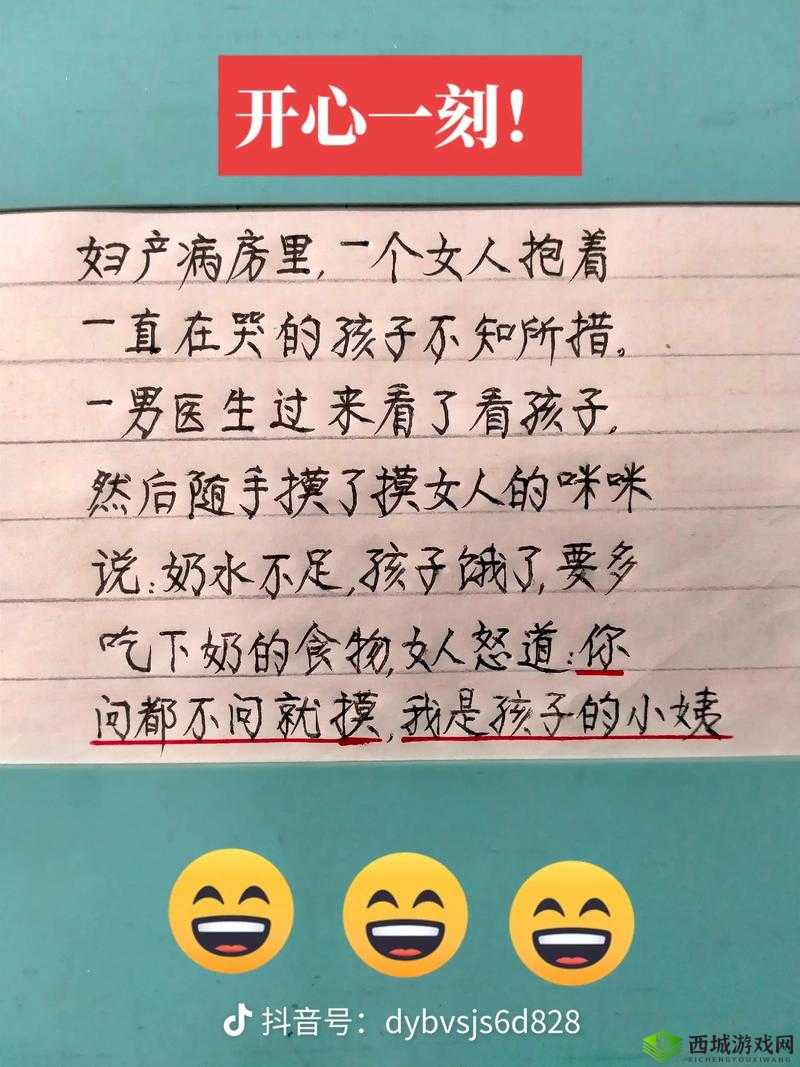 开心一刻！
妇产病房里，一个女人抱着
一直在哭的孩子不知所措。
一男医生过来看了看孩子，
然后随手摸了摸女人的咪咪
说：奶水不足，孩子饿了，要多
吃下奶的食物，女人怒道：你
问都不问就摸，我是孩子的小姨
抖音号：dybvsjs6d828
西城游戏网
XICHENGYOUXIWANG